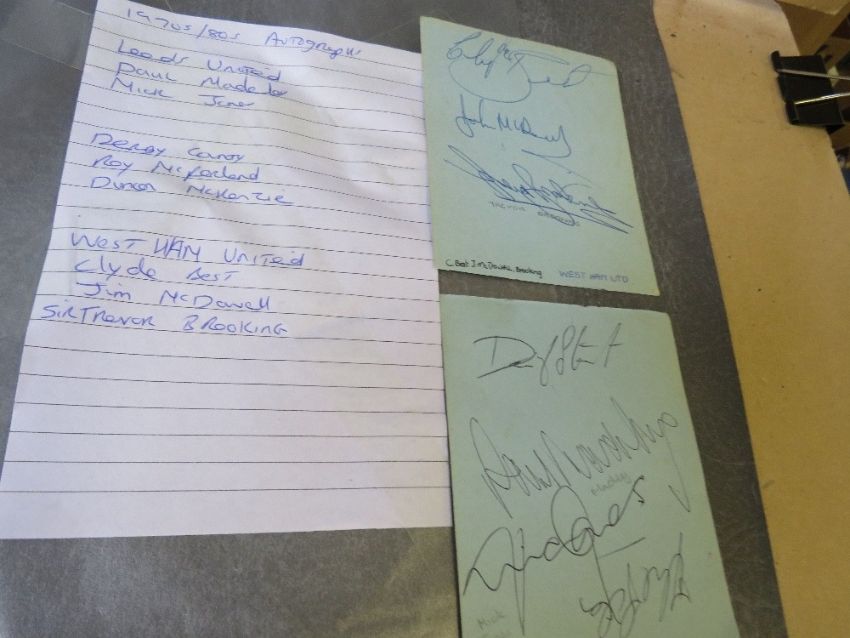 1970s/80s Autographs
Leeds United
Paul Madeley
Mick Jones
Derby County
Roy McFarland
Duncan McKenzie
West HAM UNITED
Clyde Best
Jim McDowell
SIR TREVOR BROOKING
Clyde Best
John McDowell
TREVOR BROOKING
C Best J. McDowell, Brooking
WEST HAM UTD
Paul Madeley
Madeley
Mick